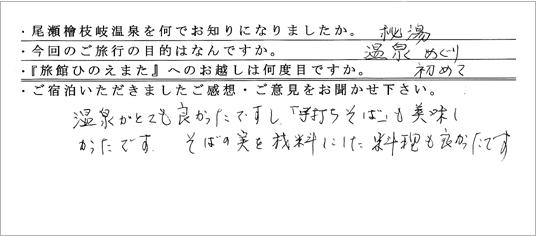 ・尾瀬檜枝岐温泉を何でお知りになりましたか。 秘湯
・今回のご旅行の目的はなんですか。 温泉めぐり
・『旅館ひのえまた』へのお越しは何度目ですか。 初めて
・ご宿泊いただきましたご感想・ご意見をお聞かせ下さい。
温泉がとても良かったですし、「手打ちそば」も美味し
かったです。 そばの実を材料にした料理も良かったです